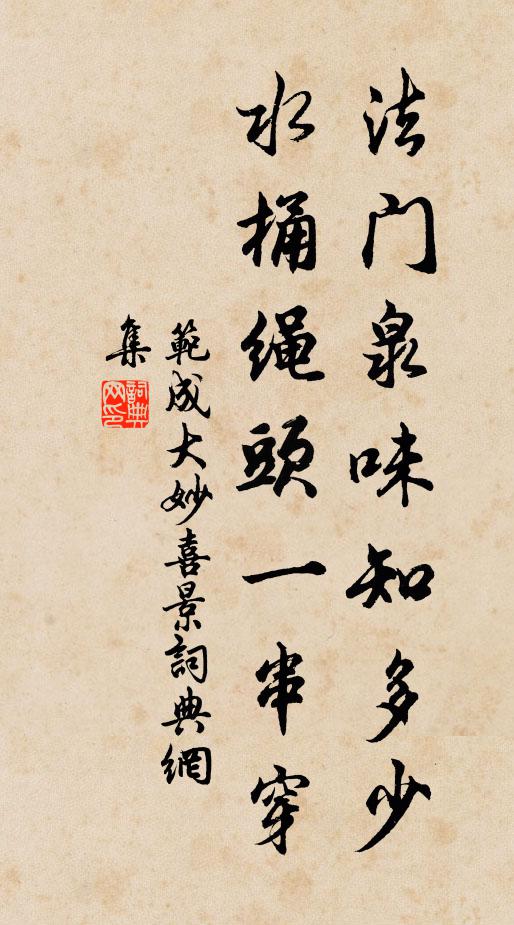 法门泉味知多少
水桶绳頭一串穿
範成大妙喜景詞典網
集
詞典網印